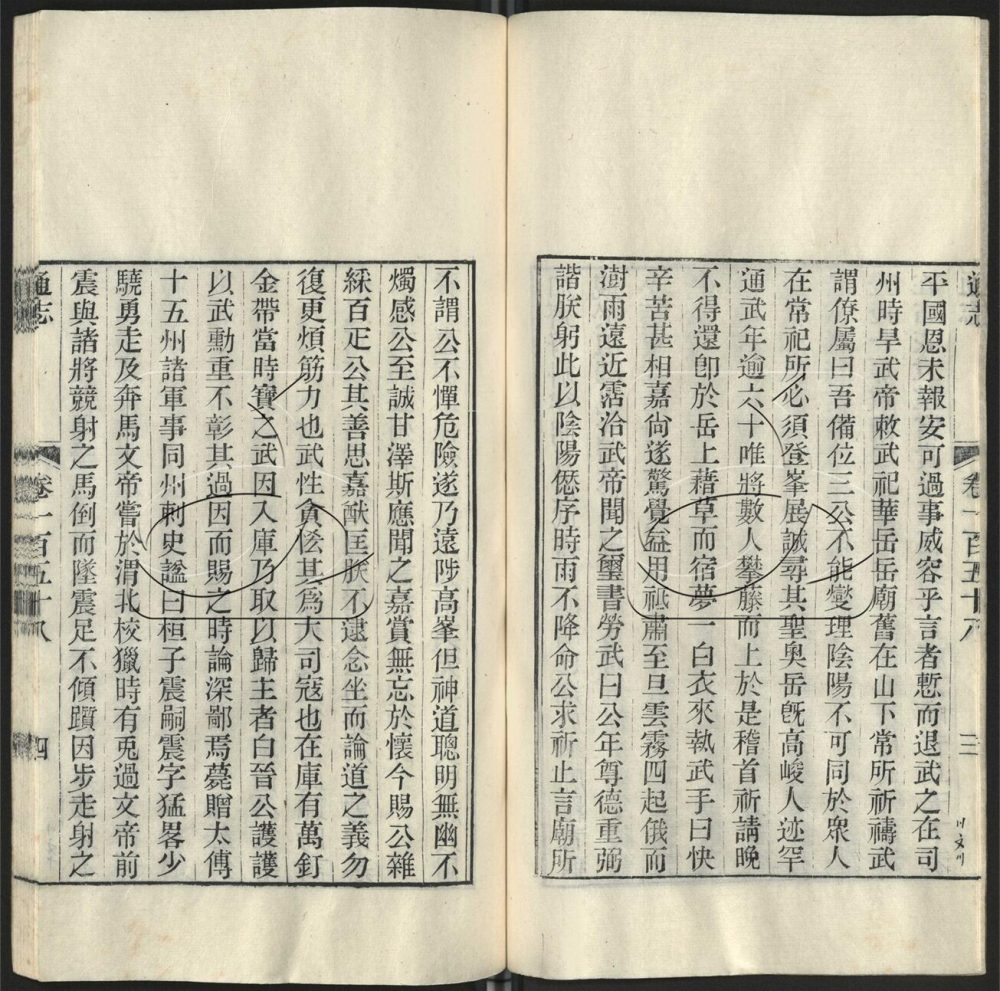 通志
卷一百五十八
三
平國恩未報安可過事威容乎言者慙而退武之在司
州時旱武帝敕武祀華岳岳廟舊在山下常所祈禱武
謂僚屬曰吾備位三公不能燮理陰陽不可同於衆人
在常祀所必須登峯展誠尋其聖奥岳旣高峻人迹罕
通武年逾六十唯將數人攀藤而上於是稽首祈請晚
不得還卽於岳上藉草而宿夢一白衣來執武手曰快
辛苦甚相嘉尙遂驚覺益用祗肅至旦雲霧四起俄而
澍雨遠近霑洽武帝聞之璽書勞武曰公年尊德重弼
諧朕躬此以陰陽愆序時雨不降命公求祈止言廟所
不謂公不憚危險遂乃遠陟高峯但神道聰明無幽不
燭感公至誠甘澤斯應聞之嘉賞無忘於懷今賜公雜
綵百疋公其善思嘉猷匡朕不逮念坐而論道之義勿
復更煩筋力也武性貪恡其爲大司寇也在庫有萬釘
金帶當時寶之武因入庫乃取以歸主者白晉公護護
以武勳重不彰其過因而賜之時論深鄙焉薨贈太傅
十五州諸軍事同州刺史諡曰桓子震嗣震字猛畧少
驍勇走及奔馬文帝嘗於渭北校獵時有兎過文帝前
震與諸將競射之馬倒而墜震足不傾躓因步走射之
通志
卷一百五十八
四